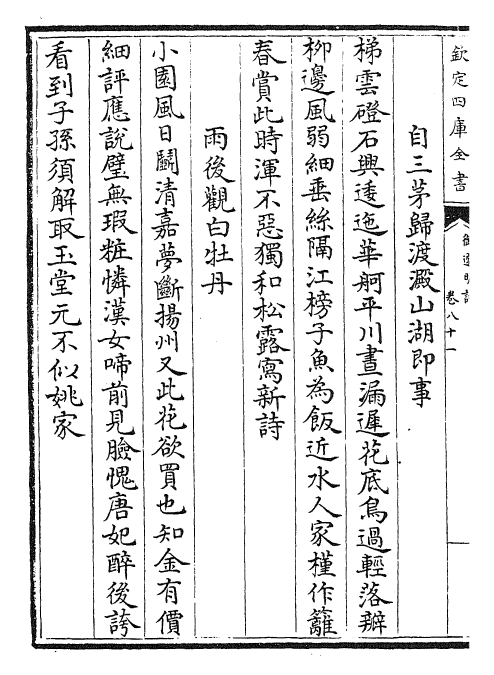 欽定四庫全書
御選明詩
卷八十一
自三茅歸渡澱山湖即事
梯雲磴石興逶迤華舸平川晝漏遲花底鳥過輕落瓣
柳邊風弱細垂絲隔江榜子魚為飯近水人家槿作籬
春賞此時渾不惡獨和松露寫新詩
雨後觀白牡丹
小園風日鬭清嘉夢斷揚州又此花欲買也知金有價
細評應說璧無瑕粧憐漢女啼前見臉愧唐妃醉後誇
看到子孫須解取玉堂元不似姚家